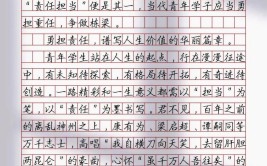 "责任担当"便是其一，当代青年学子应当勇
担重任，争做栋梁。
勇担责任，谱写人生价值的华丽篇章。
青年学生站在人生的起点，行在漫漫征途
中，有未知待探索，有格局待开拓，有奇迹待
创造。一路精彩和一生意义都需以"担当"为
笔，以"责任"为墨书写。君不见，百年之前
的离乱神州之上，康有为、梁启超、谭嗣同等
万千志士，高唱"我自横刀向天笑，去留肝胆
两昆仑"的豪曲，心怀"虽千万人吾往矣"的